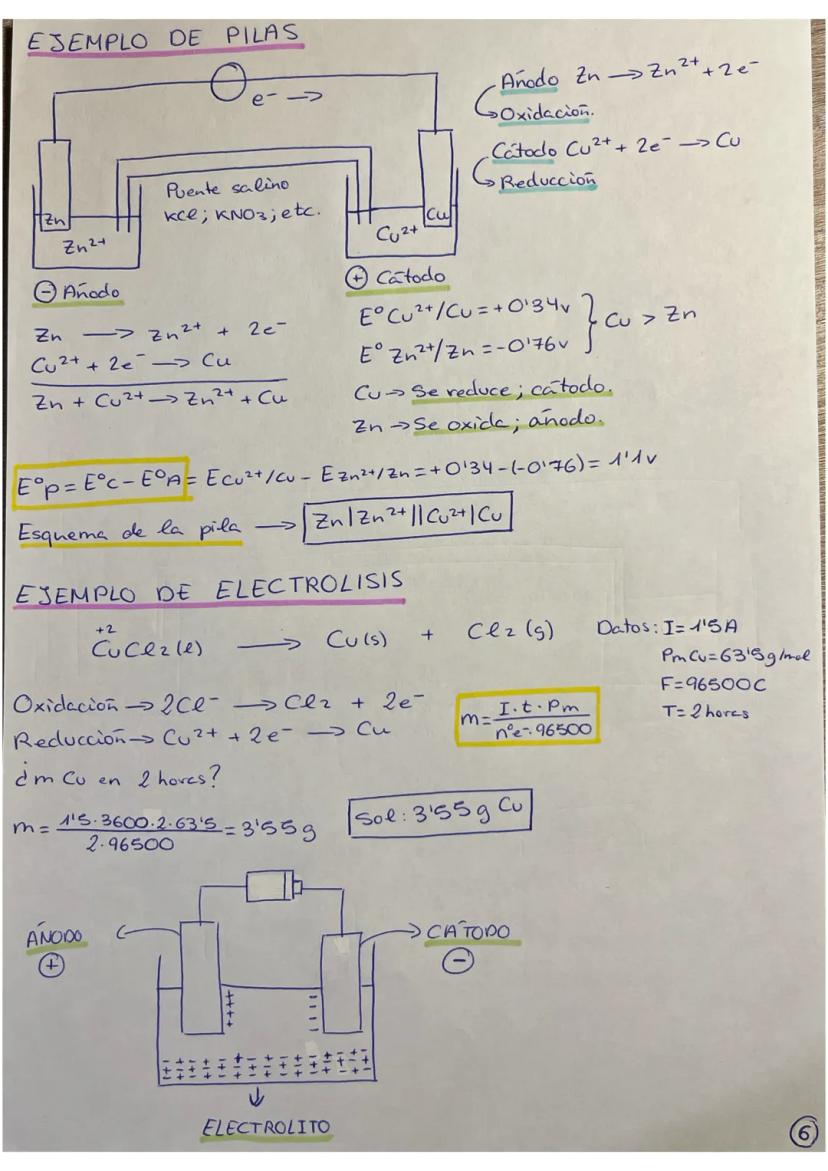 EJEMPLO DE PILAS
e⁻ →
Puente salino
KCl; KNO₃; etc.
Zn
Zn²⁺
Cu
Cu²⁺
⊖ Añodo
⊕ Cátodo
Añodo Zn → Zn²⁺ + 2e⁻
Oxidación.
Cátodo Cu²⁺ + 2e⁻ → Cu
Reducción
Zn → Zn²⁺ + 2e⁻
Cu²⁺ + 2e⁻ → Cu
Zn + Cu²⁺ → Zn²⁺ + Cu
E° Cu²⁺/Cu = +0'34v
E° Zn²⁺/Zn = -0'76v
} Cu > Zn
Cu → Se reduce; cátodo.
Zn → Se oxida; añodo.
E°p = E°c - E°A = E Cu²⁺/Cu - E Zn²⁺/Zn = +0'34 - (-0'76) = 1'1v
Esquema de la pila → Zn|Zn²⁺||Cu²⁺|Cu
EJEMPLO DE ELECTROLISIS
+2
CuCl₂(l) → Cu(s) + Cl₂(g)
Datos: I=1'5A
Pm Cu=63'5g/mol
F=96500C
T=2 horas
Oxidación → 2Cl⁻ → Cl₂ + 2e⁻
Reducción → Cu²⁺ + 2e⁻ → Cu
m = I.t.Pm / nºe⁻.96500
¿m Cu en 2 horas?
m = 1'5.3600.2.63'5 / 2.96500 = 3'55g
Sol: 3'55g Cu
AÑODO
⊕
CÁTODO
⊖
+
+
+
+
-
-
-
-
ELECTROLITO
6